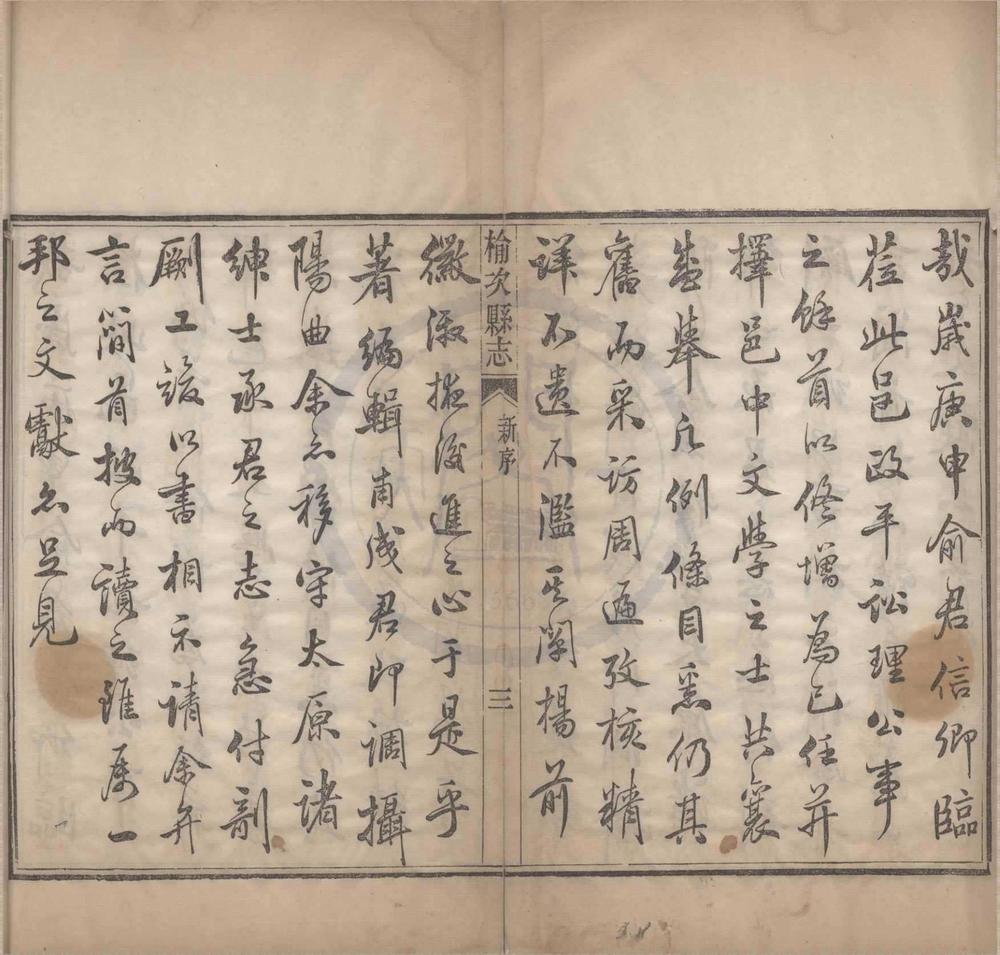 哉歲庚申俞君信卿臨
莅此邑政平訟理公事
之餘首以修增為己任并
擇邑中文學之士共襄
盛舉凡例條目悉仍其
舊而采訪周遍攷核精
詳不遺不濫其闡揚前
榆次縣志
新序
三
徽激掖後進之心于是乎
著編輯甫成君即調攝
陽曲余亦移守太原諸
紳士承君之志急付剞
劂工竣以書相示請余弁
言簡首披而讀之雖屬一
邦之文獻亦足見